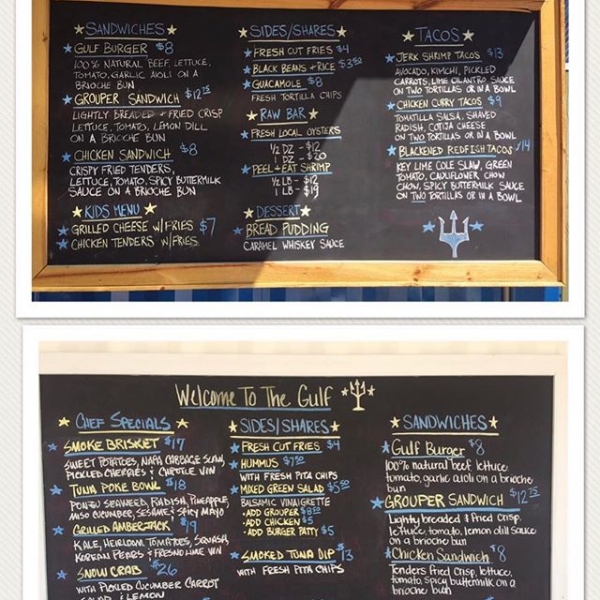 SANDWICHES
GULF BURGER $8
100% NATURAL BEEF, LETTUCE,
TOMATO, GARLIC AIOLI ON A
BRIOCHE BUN
GROUPER SANDWICH $12.75
LIGHTLY BREADED + FRIED CRISP
LETTUCE, TOMATO, LEMON DILL
ON A BRIOCHE BUN
CHICKEN SANDWICH $8
CRISPY FRIED TENDERS,
LETTUCE, TOMATO, SPICY BUTTERMILK
SAUCE ON A BRIOCHE BUN
KIDS MENU
GRILLED CHEESE W/FRIES $7
CHICKEN TENDERS W/FRIES
SIDES/SHARES
FRESH CUT FRIES $4
BLACK BEANS + RICE $3.50
GUACAMOLE $8
FRESH TORTILLA CHIPS
RAW BAR
FRESH LOCAL OYSTERS
1/2 DZ - $12
1 DZ - $20
PEEL + EAT SHRIMP
1/2 LB - $12
1 LB - $19
DESSERT
BREAD PUDDING
CARAMEL WHISKEY SAUCE
TACOS
JERK SHRIMP TACOS $13
AVOCADO, KIMCHI, PICKLED
CARROTS, LIME CILANTRO SAUCE
ON TWO TORTILLAS OR IN A BOWL
CHICKEN CURRY TACOS $9
TOMATILLA SALSA, SHAVED
RADISH, COTIJA CHEESE
ON TWO TORTILLAS OR IN A BOWL
BLACKENED REDFISH TACOS $14
KEY LIME COLE SLAW, GREEN
TOMATO, CAULIFLOWER CHOW
CHOW, SPICY BUTTERMILK SAUCE
ON TWO TORTILLAS OR IN A BOWL
Welcome To The Gulf
CHEF SPECIALS
SMOKE BRISKET $17
SWEET POTATOES, NAPA CABBAGE SLAW,
PICKLED CHERRIES & CHIPOTLE VIN
TUNA POKE BOWL $18
PONZU SEAWEED, RADISH, PINEAPPLE,
MISO CUCUMBER, SESAME & SPICY MAYO
GRILLED AMBERJACK $19
KALE, HEIRLOOM TOMATOES, SQUASH,
KOREAN PEARS & FRESNO LIME VIN
SNOW CRAB $26
WITH PICKLED CUCUMBER CARROT
SALAD & LEMON
SIDES/SHARES
FRESH CUT FRIES $4
HUMMUS $7.50
WITH FRESH PITA CHIPS
MIXED GREEN SALAD $5.50
BALSAMIC VINAIGRETTE
-ADD GROUPER $8
-ADD CHICKEN $5
-ADD BURGER PATTY $5
SMOKED TUNA DIP $13
WITH FRESH PITA CHIPS
SANDWICHES
Gulf Burger $8
100% natural beef lettuce,
tomato, garlic aioli on a brioche
bun
GROUPER SANDWICH $12.75
Lightly breaded & fried crisp.
lettuce, tomato, lemon dill sauce
on a brioche bun
Chicken Sandwich $8
Tenders fried crisp, lettuce,
tomato, spicy buttermilk on a
brioche bun